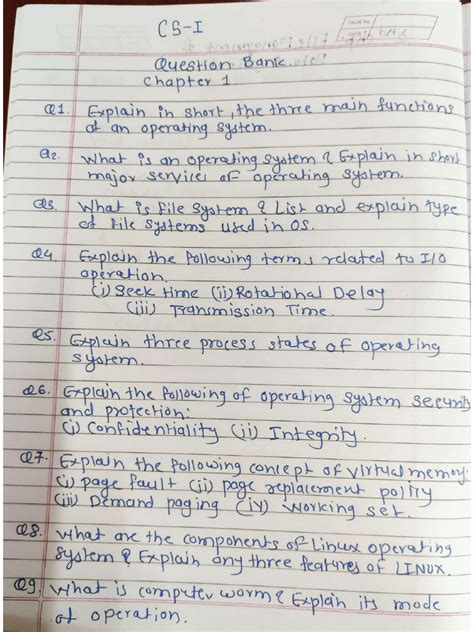 CS-I
Question Bank.
Chapter 1
Q1. Explain in short, the three main functions
of an operating system.
Q2. What is an operating system? Explain in short
major services of operating system.
Q3. What is File System? List and explain type
of file systems used in OS.
Q4. Explain the following terms related to I/O
operation.
(i) Seek time (ii) Rotational Delay
(iii) Transmission Time.
Q5. Explain three process states of operating
system.
Q6. Explain the following of operating system security
and protection:
(i) Confidentiality (ii) Integrity.
Q7. Explain the following concept of virtual memory:
(i) page fault (ii) page replacement policy
(iii) Demand paging (iv) Working set.
Q8. What are the components of Linux operating
system? Explain any three features of LINUX.
Q9. What is computer worm? Explain its mode
of operation.